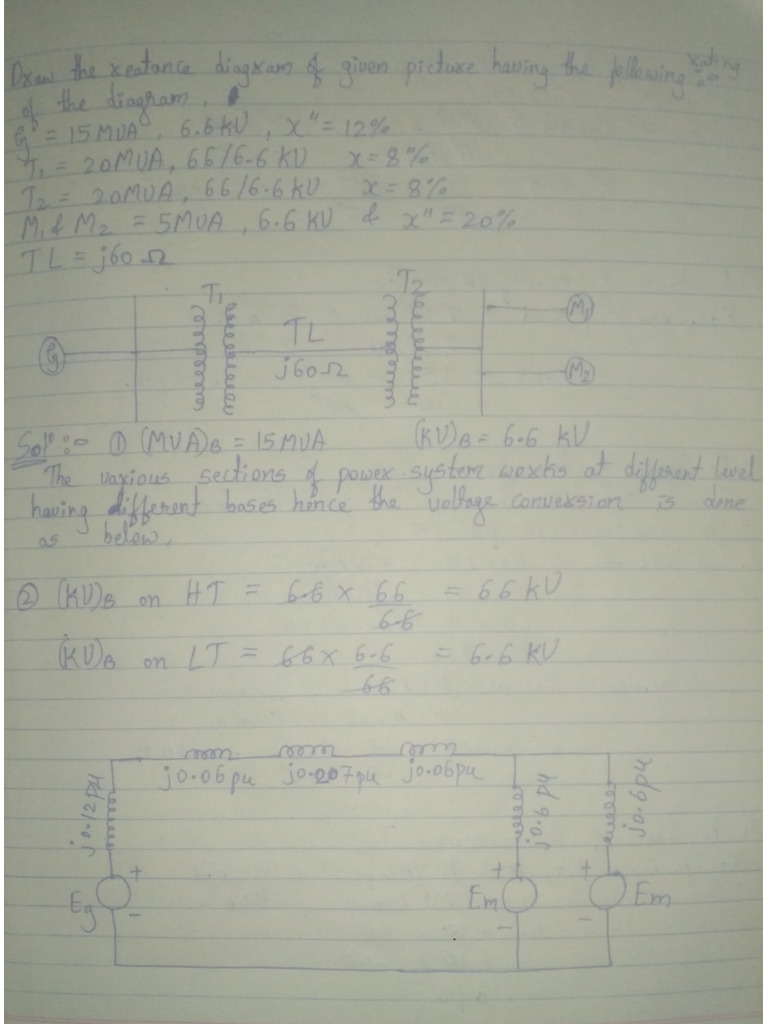 Draw the reatance diagram of given picture having the following rating :-
of the diagram.
G = 15 MVA, 6.6 kV, x" = 12%
T1 = 20MVA, 66/6.6 kV x = 8%
T2 = 20MVA, 66/6.6 kV x = 8%
M1 & M2 = 5MVA, 6.6 kV & x" = 20%
TL = j60 Ω
T1 T2
TL
G j60Ω M1
M2
Solⁿ :- ① (MVA)B = 15 MVA (KV)B = 6.6 kV
The various sections of power system works at different level
having different bases hence the voltage conversion is done
as below.
② (KV)B on HT = 6.6 × 66/6.6 = 66 kV
(KV)B on LT = 66 × 6.6/66 = 6.6 kV
j0.12pu j0.06pu j0.207pu j0.06pu j0.6pu j0.6pu
+ + +
Eg Em Em
- - -